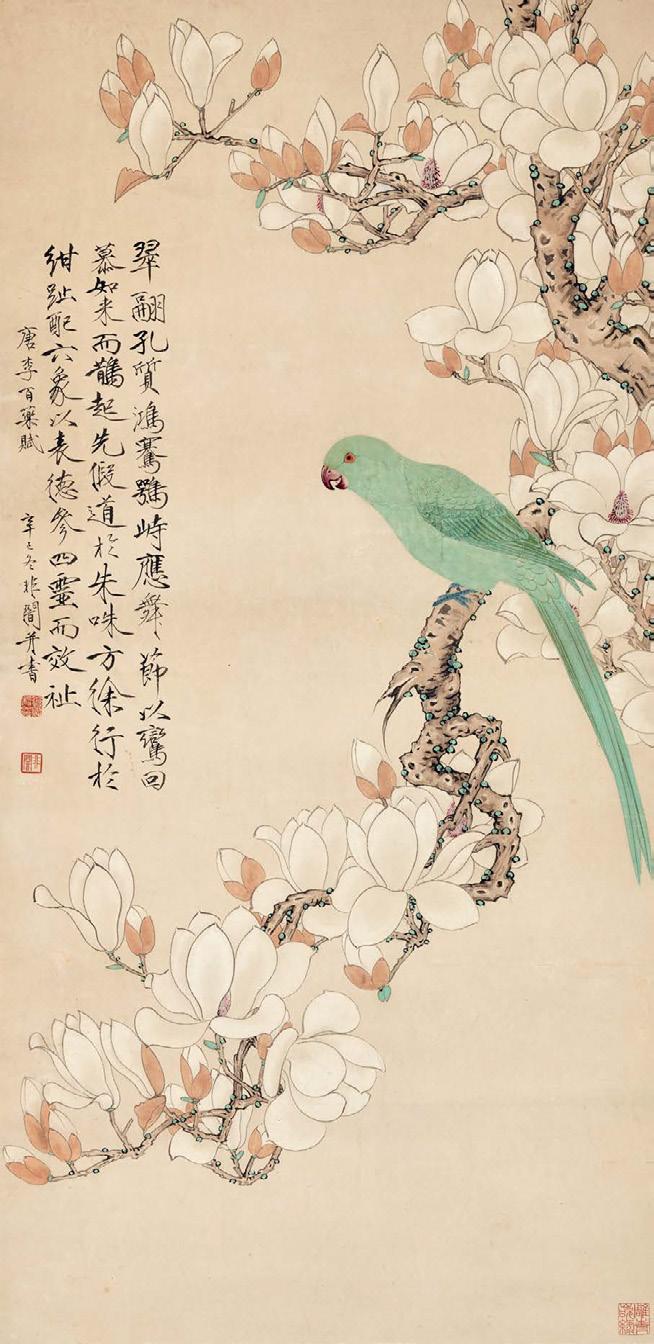 翠翮孔質鴻騫鶚峙應舞節以鸞回
慕如来而鵲起先假道於朱咮方徐行於
紺趾配六象以表德參四靈而效祉
唐李百藥賦 辛巳冬非闇并書